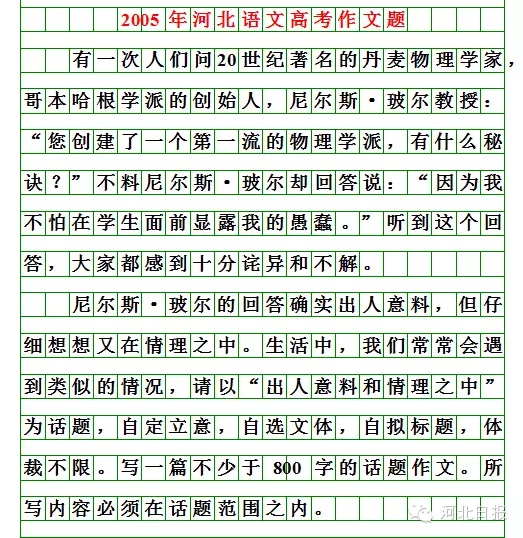 2005年河北语文高考作文题
有一次人们问20世纪著名的丹麦物理学家，
哥本哈根学派的创始人，尼尔斯·玻尔教授：
“您创建了一个第一流的物理学派，有什么秘
诀？”不料尼尔斯·玻尔却回答说：“因为我
不怕在学生面前显露我的愚蠢。”听到这个回
答，大家都感到十分诧异和不解。
尼尔斯·玻尔的回答确实出人意料，但仔
细想想又在情理之中。生活中，我们常常会遇
到类似的情况，请以“出人意料和情理之中”
为话题，自定立意，自选文体，自拟标题，体
裁不限。写一篇不少于 800 字的话题作文。所
写内容必须在话题范围之内。
河北日报